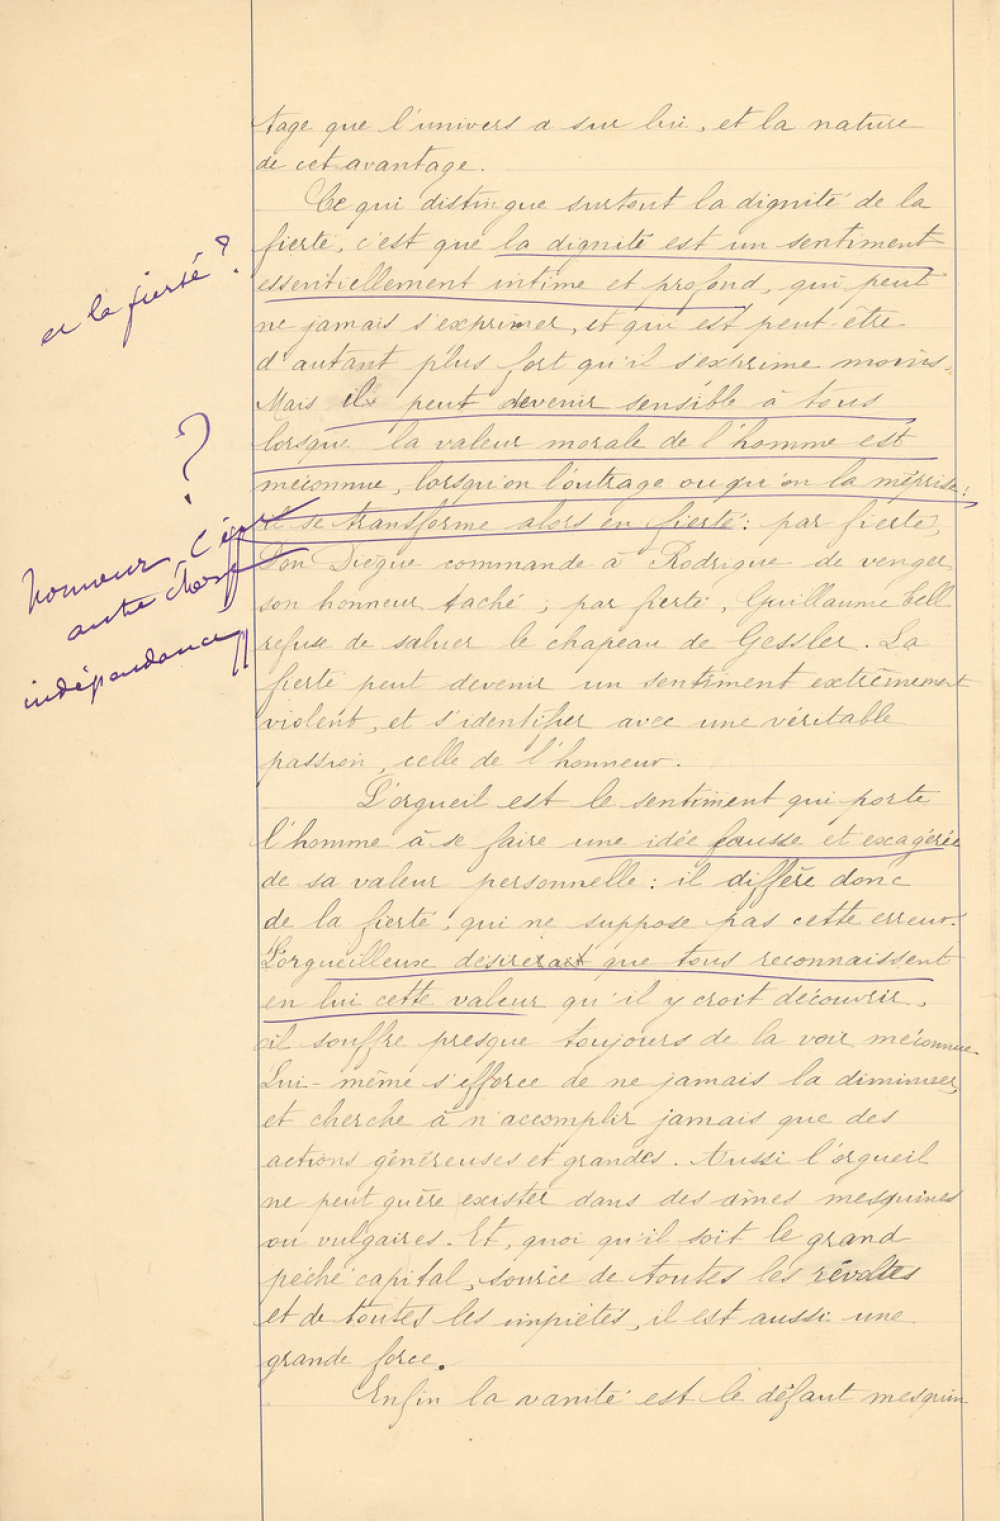 tage que l'univers a sur lui, et la nature
de cet avantage.
Ce qui distingue surtout la dignité de la
fierté, c'est que la dignité est un sentiment
et la fierté ?
essentiellement intime et profond, qui peut
ne jamais s'exprimer, et qui est peut-être
d'autant plus fort qu'il s'exprime moins.
Mais il peut devenir sensible à tous
lorsque la valeur morale de l'homme est
?
méconnue, lorsqu'on l'outrage ou qu'on la méprise :
il se transforme alors en fierté : par fierté,
honneur, c'est
autre chose
Don Diègue commande à Rodrigue de venger
son honneur taché ; par fierté, Guillaume Tell
indépendance
refuse de saluer le chapeau de Gessler. La
fierté peut devenir un sentiment extrêmement
violent, et s'identifier avec une véritable
passion, celle de l'honneur.
L'orgueil est le sentiment qui porte
l'homme à se faire une idée fausse et exagérée
de sa valeur personnelle : il diffère donc
de la fierté, qui ne suppose pas cette erreur.
L'orgueilleux désirerait que tous reconnaissent
en lui cette valeur qu'il y croit découvrir,
il souffre presque toujours de la voir méconnue.
Lui-même s'efforce de ne jamais la diminuer,
et cherche à n'accomplir jamais que des
actions généreuses et grandes. Aussi l'orgueil
ne peut guère exister dans des âmes mesquines
ou vulgaires. Et, quoi qu'il soit le grand
péché capital, source de toutes les révoltes
et de toutes les impiétés, il est aussi une
grande force.
Enfin la vanité est le défaut mesquin